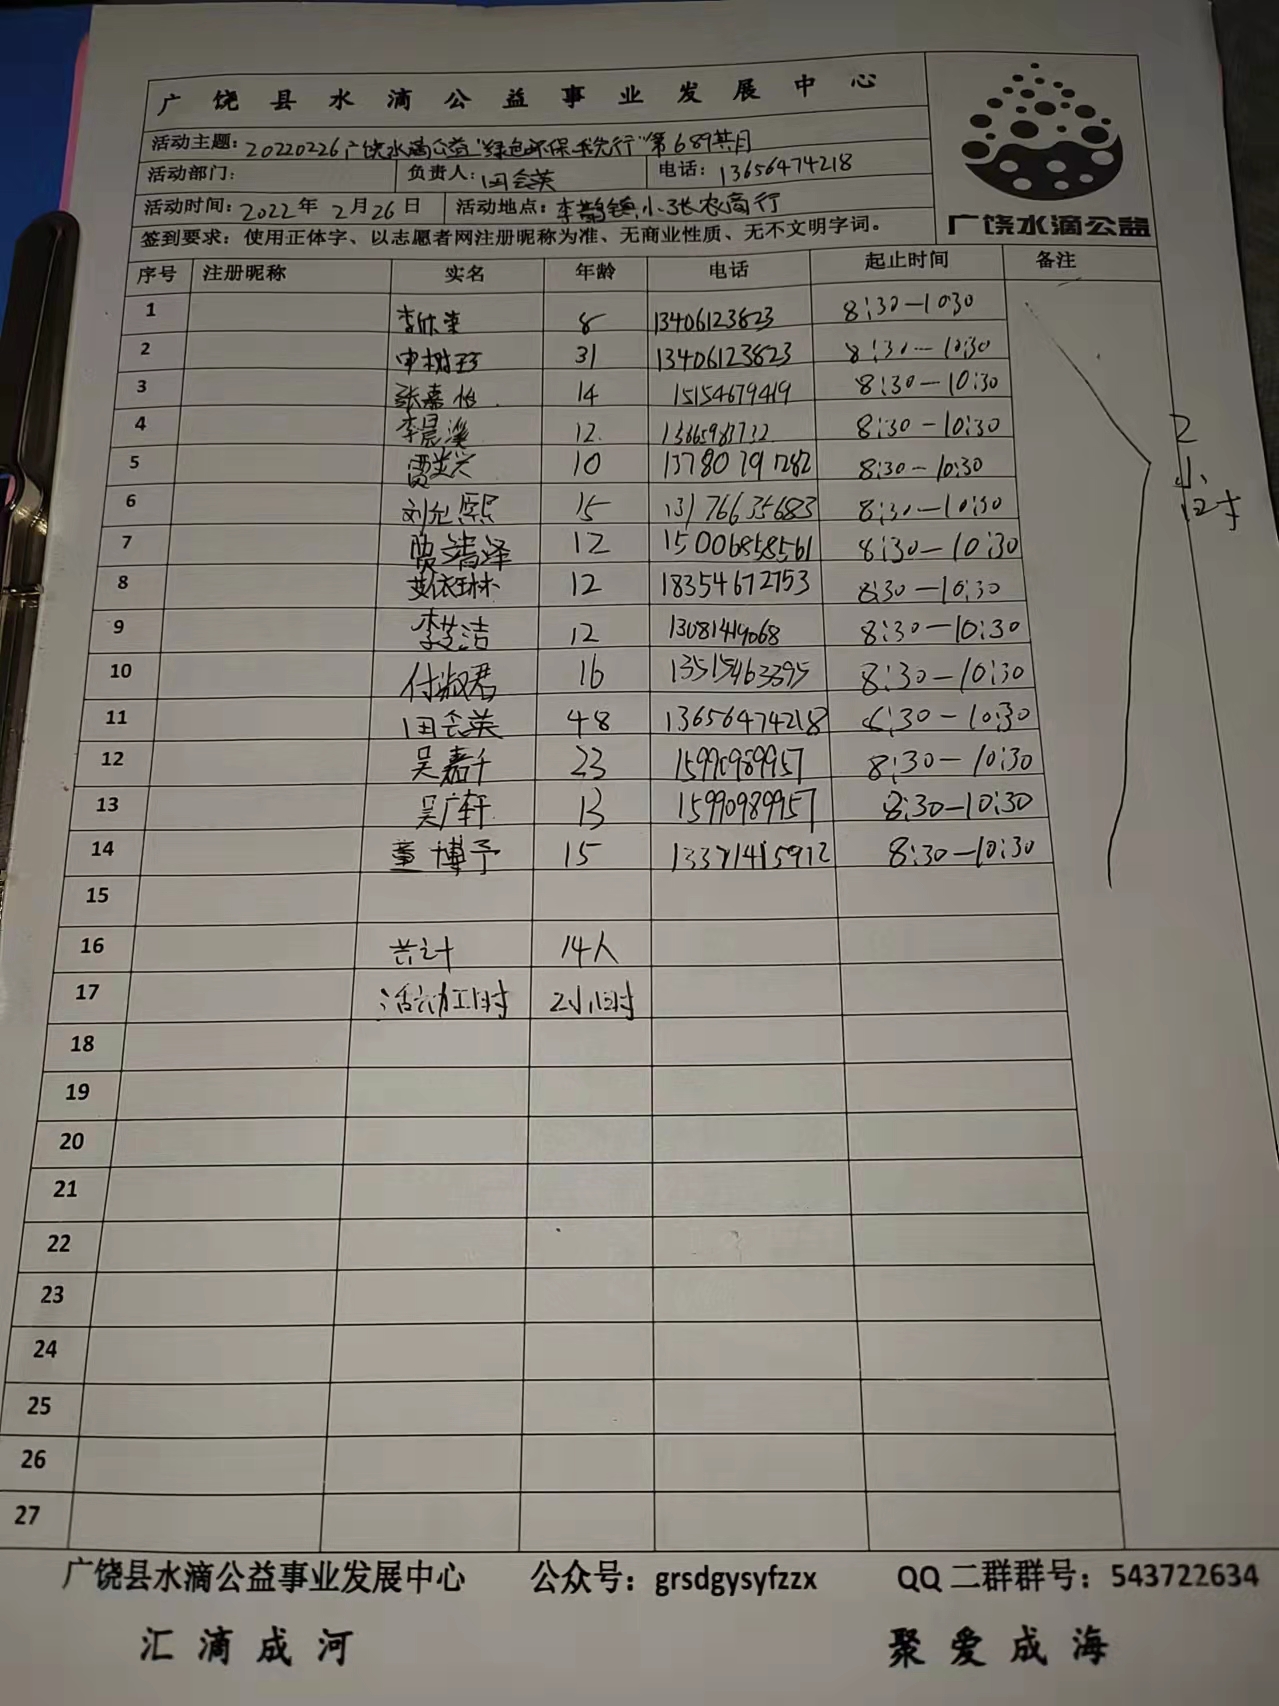 广饶县水滴公益事业发展中心
活动主题：20220226广饶水滴公益"绿色环保 我先行"第689期
活动部门： 负责人：田会英 电话：13656474218
活动时间：2022年2月26日 活动地点：李鹊镇小张农商行
签到要求：使用正体字、以志愿者网注册昵称为准、无商业性质、无不文明字词。
广饶水滴公益
序号 注册昵称 实名 年龄 电话 起止时间 备注
1 李欣 8 13406123823 8:30-10:30
2 申树 31 13406123823 8:30-10:30
3 张嘉怡 14 15154679419 8:30-10:30
4 李晨溪 12 8:30-10:30
5 10 13780791282 8:30-10:30
6 刘允熙 15 13176635683 8:30-10:30
7 贾清泽 12 15006858561 8:30-10:30
8 依琳 12 18354672753 8:30-10:30
9 李艾洁 12 13081419068 8:30-10:30
10 付淑君 16 13515463395 8:30-10:30
11 田会英 48 13656474218 8:30-10:30
12 吴嘉千 23 15990989957 8:30-10:30
13 吴广轩 13 15990989957 8:30-10:30
14 董博予 15 13371415912 8:30-10:30
2小时
15
16 共计 14人
17 活动工时 2小时
18
19
20
21
22
23
24
25
26
27
广饶县水滴公益事业发展中心 公众号：grsdgysyfzzx QQ二群群号：543722634
汇滴成河 聚爱成海